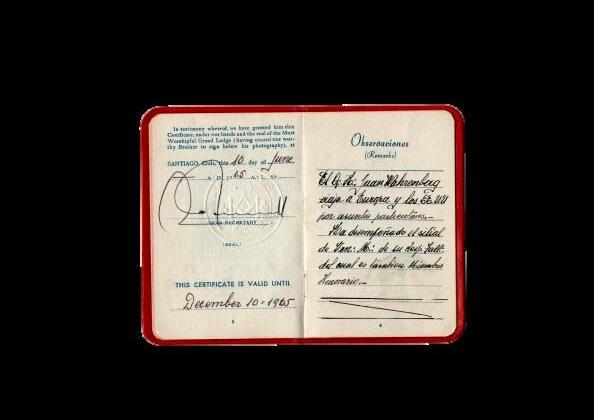 In testimony whereof, we have granted him this
Certificate, under our hands and the seal of the Most
Worshipful Grand Lodge (having caused our wor-
thy Brother to sign below his photography), at
SANTIAGO Chile, this 10 day of June
A. D. 1965 A. L.
GRAN SECRETARY
(SEAL)
THIS CERTIFICATE IS VALID UNTIL
December 10-1965
Observaciones
(Remarks)
El Q. H∴ Juan Wahrenberg
viaja a Europa y los EE.UU
por asuntos particulares.-
Ha desempeñado el sitial
de Ven∴ M∴ de su Resp.
del cual es también Miembro
Honorario.-